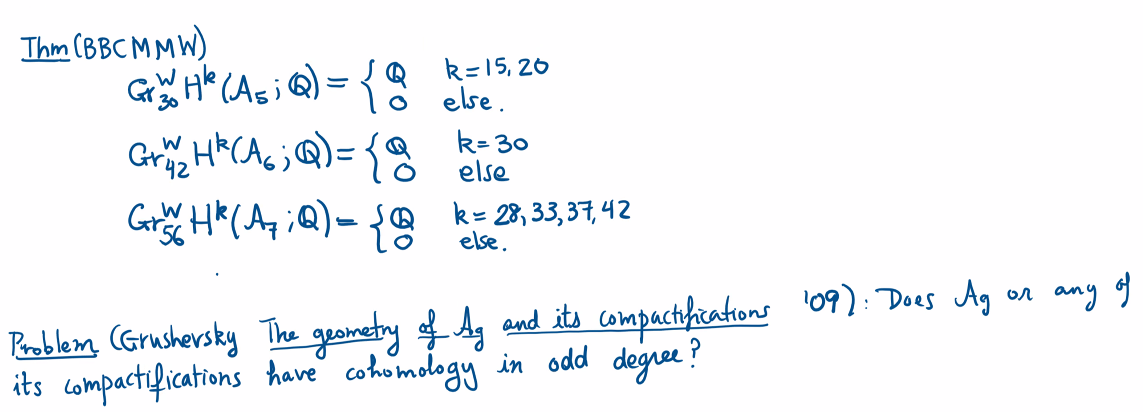 Thm (BBCMMW)
Gr^W_30 H^k(A_5; Q) = { Q k=15, 20
0 else.
Gr^W_42 H^k(A_6; Q) = { Q k=30
0 else
Gr^W_56 H^k(A_7; Q) = { Q k=28, 33, 37, 42
0 else.
Problem (Grushevsky The geometry of Ag and its compactifications '09): Does Ag or any of
its compactifications have cohomology in odd degree?